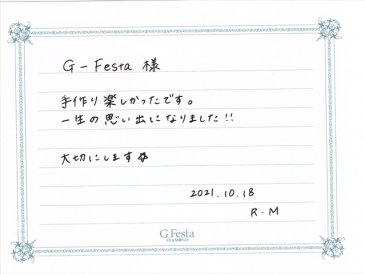 G-Festa 様
手作り楽しかったです。
一生の思い出になりました!!
大切にします
2021.10.18
R.M
G.Festa